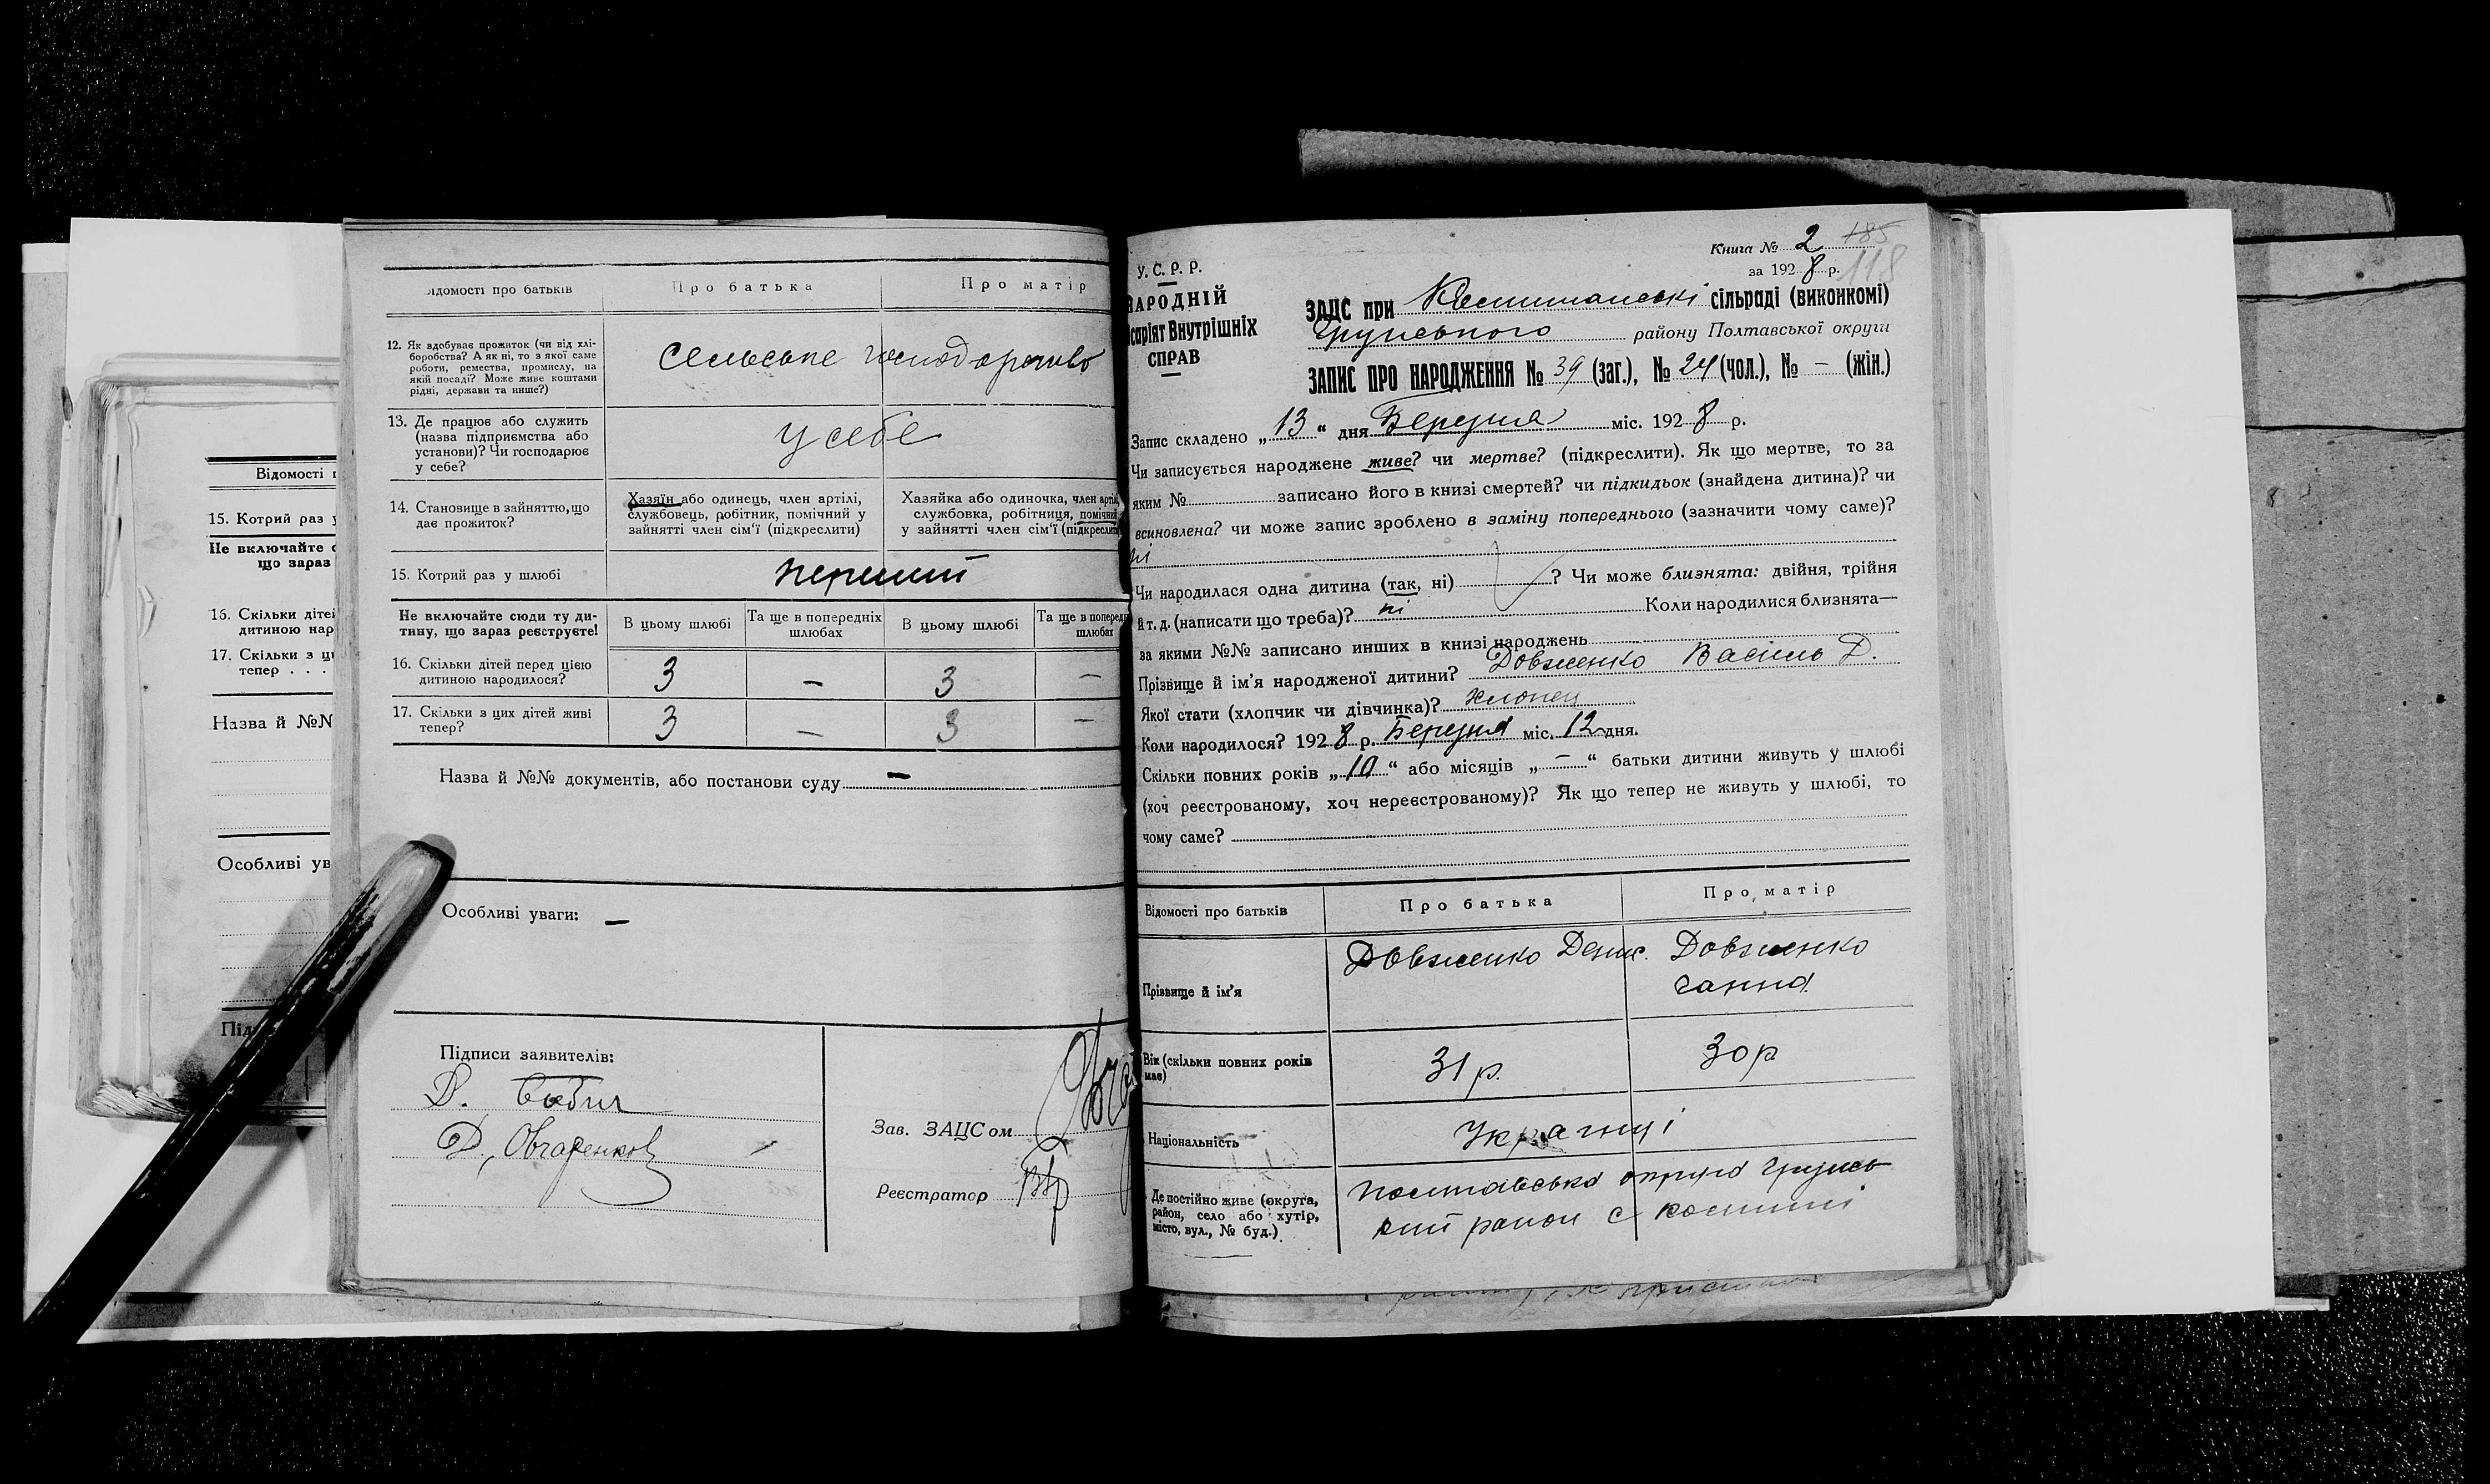 Відомості п
15. Котрий раз у
Не включайте с
що зараз
16. Скільки дітей
дитиною нар
17. Скільки з ци
тепер . . .
Назва й №№
Особливі ув
Під
Відомості про батьків
Про батька
Про матір
12. Як здобуває прожиток (чи від хлі-
боробства? А як ні, то з якої саме
роботи, ремества, промислу, на
якій посаді? Може живе коштами
рідні, держави та инше?)
Сельське господарство
13. Де працює або служить
(назва підприємства або
установи)? Чи господарює
у себе?
у себе
14. Становище в зайняттю, що
дає прожиток?
Хазяїн або одинець, член артілі,
службовець, робітник, помічний у
зайнятті член сім'ї (підкреслити)
Хазяйка або одиночка, член артілі,
службовка, робітниця, помічний
у зайнятті член сім'ї (підкреслити
15. Котрий раз у шлюбі
перший
Не включайте сюди ту ди-
тину, що зараз реєструєте!
В цьому шлюбі
Та ще в попередніх
шлюбах
В цьому шлюбі
Та ще в поперед
шлюбах
16. Скільки дітей перед цією
дитиною народилося?
3 — 3 —
17. Скільки з цих дітей живі
тепер?
3 — 3 —
Назва й №№ документів, або постанови суду —
Особливі уваги: —
Підписи заявителів:
Д.
Д. Овчаренков
Зав. ЗАЦСом
Реєстратор
Книга № 2 185
за 1928 р. 118
У. С. Р. Р.
НАРОДНІЙ
ісаріят Внутрішніх
СПРАВ
ЗАЦС при сільраді (виконкомі)
Грунського району Полтавської округи
ЗАПИС ПРО НАРОДЖЕННЯ № 39 (заг.), № 24 (чол.), № — (жін.)
Запис складено „13“ дня Березня міс. 1928 р.
Чи записується народжене живе? чи мертве? (підкреслити). Як що мертве, то за
яким № записано його в книзі смертей? чи підкидьок (знайдена дитина)? чи
всиновлена? чи може запис зроблено в заміну попереднього (зазначити чому саме)?
ні
Чи народилася одна дитина (так, ні) ? Чи може близнята: двійня, трійня
й т. д. (написати що треба)? ні Коли народилися близнята—
за якими №№ записано инших в книзі народжень
Прізвище й ім'я народженої дитини? Довженко Василь Д.
Якої стати (хлопчик чи дівчинка)? хлопец
Коли народилося? 1928 р. Березня міс. 12 дня.
Скільки повних років „10“ або місяців „—“ батьки дитини живуть у шлюбі
(хоч реєстрованому, хоч нереєстрованому)? Як що тепер не живуть у шлюбі, то
чому саме?
Відомості про батьків
Про батька
Про матір
Прізвище й ім'я
Довженко Денис.
Довженко
Ганна
Вік (скільки повних років
має)
31 р.
30 р
Національність
Українці
Де постійно живе (округа,
район, село або хутір,
місто, вул., № буд.)
Полтавська округа Грунсь
кий район с